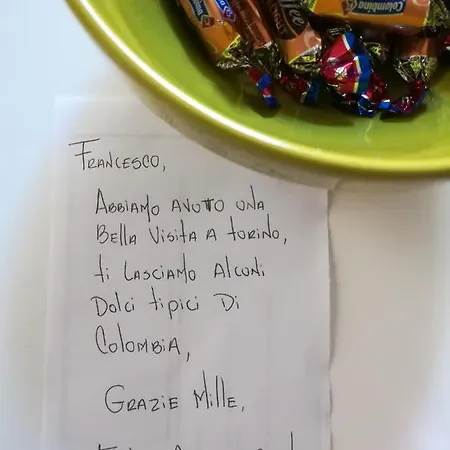 Colombina
Francesco,
Abbiamo avuto una
Bella visita a torino,
ti lasciamo alcuni
Dolci tipici Di
Colombia,
Grazie Mille,